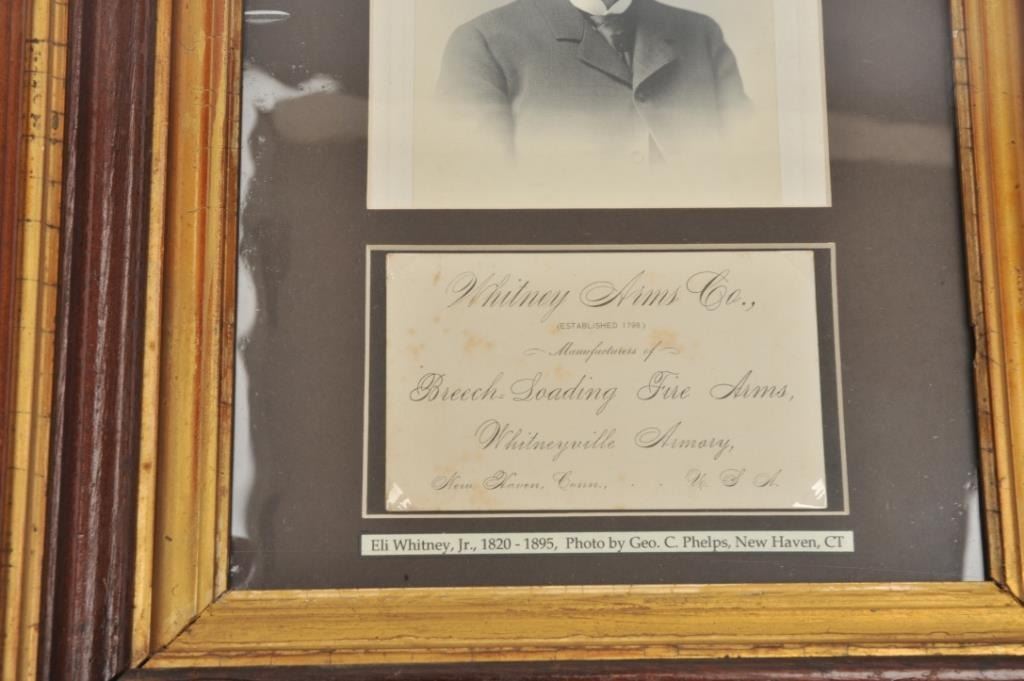 Whitney Arms Co.,
(ESTABLISHED 1798)
Manufacturers of
Breech-Loading Fire Arms,
Whitneyville Armory,
New Haven, Conn., . . U. S. A.
Eli Whitney, Jr., 1820 - 1895, Photo by Geo. C. Phelps, New Haven, CT